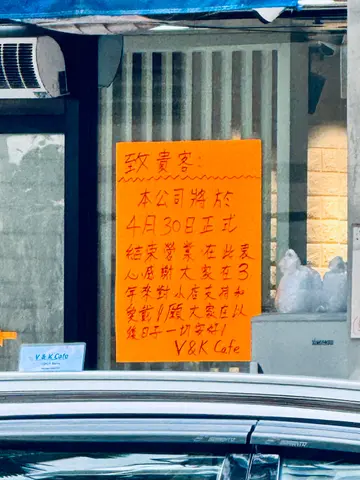 致貴客：
本公司將於
4月30日正式
結束營業，在此衷
心感謝大家在3
年來對小店支持和
愛戴！願大家在以
後日子一切安好！
V & K Cafe
V & K Cafe